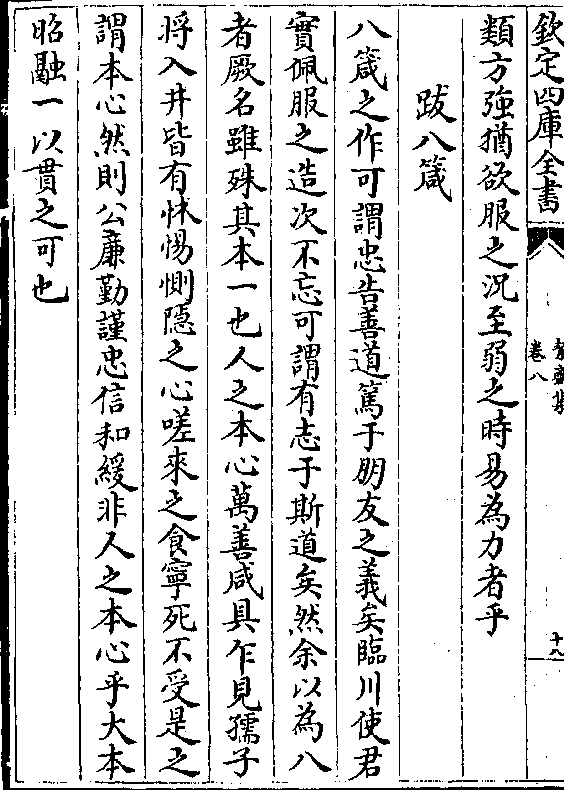 欽定四庫全書
卷八
十八
類方強猶欲服之況至弱之時易為力者乎
跋八箴
八箴之作可謂忠告善道篤于朋友之義矣臨川使君
實佩服之造次不忘可謂有志于斯道矣然余以為八
者厥名雖殊其本一也人之本心萬善咸具乍見孺子
將入井皆有怵惕惻隱之心嗟來之食寧死不受是之
謂本心然則公廉勤謹忠信和緩非人之本心乎大本
昭融一以貫之可也